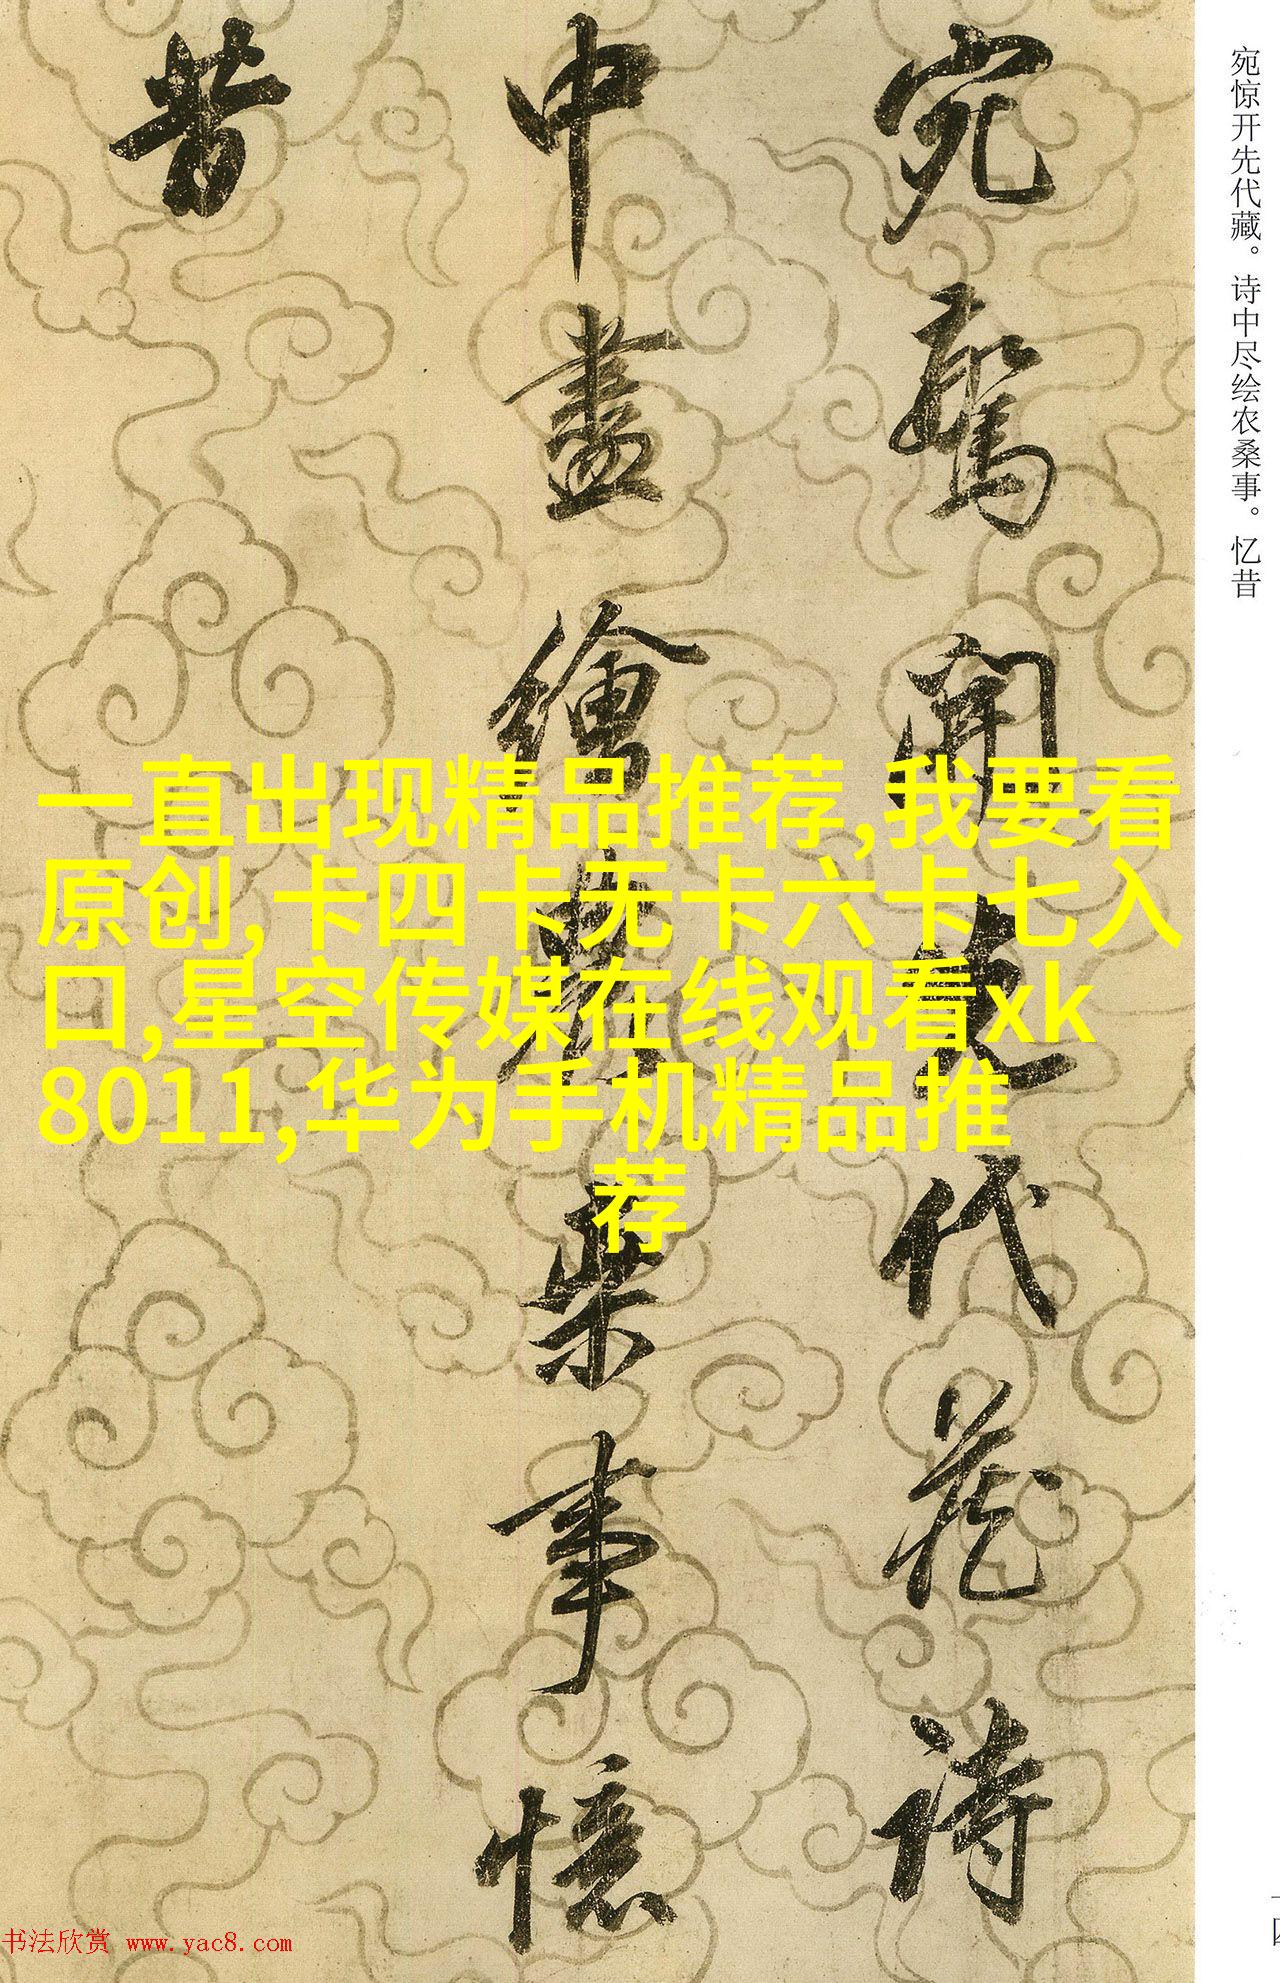 宛驚開先代藏詩
中盡繪農桒事憶
昔
宛惊开先代藏。诗中尽绘农桑事。忆昔
一直出现精品推荐,我要看
原创,卡四卡无卡六卡七入
口,星空传媒在线观看xk
8011,华为手机精品推
荐
书法欣赏 www.yac8.com